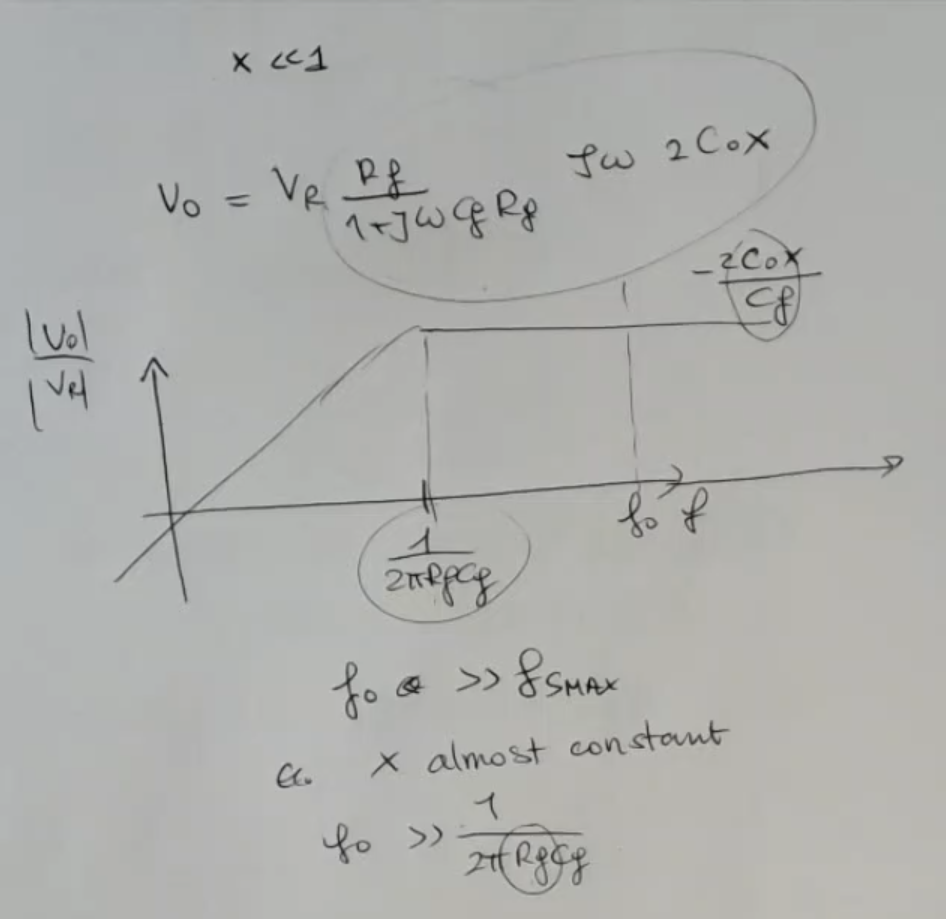 x <<1
Vo = VR Rf / 1+JωCfRf Jω 2Cox
-2Cox / Cf
|Vo| / |VR|
fo f
1 / 2πRfCf
fo >> fSMAX
x almost constant
fo >> 1 / 2πRfCf